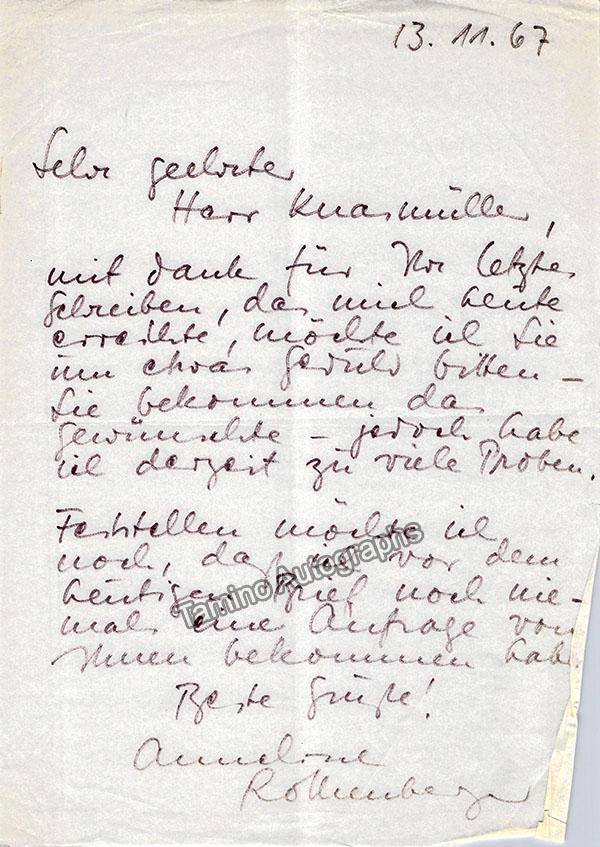 13. 11. 67
Sehr geehrter
Herr Knasmüller,
mit Dank für Ihr letztes
Schreiben, das mich heute
erreichte, möchte ich Sie
um etwas Geduld bitten –
Sie bekommen das
Gewünschte – jedoch habe
ich derzeit zu viele Proben.
Feststellen möchte ich
noch, daß ich vor dem
heutigen Brief noch nie-
mals eine Anfrage von
Ihnen bekommen habe.
Beste Grüße!
Anneliese
Rothenberger
Tamino Autographs